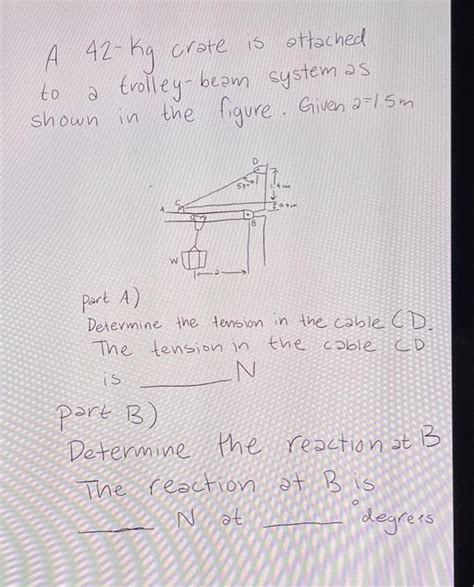 A 42-kg crate is attached
to a trolley-beam system as
shown in the figure. Given a=1.5m
D
55°
1.4 m
C
A
0.4m
B
W
a
part A)
Determine the tension in the cable CD.
The tension in the cable CD
is ______ N
part B)
Determine the reaction at B
The reaction at B is
______ N at ______ ° degrees